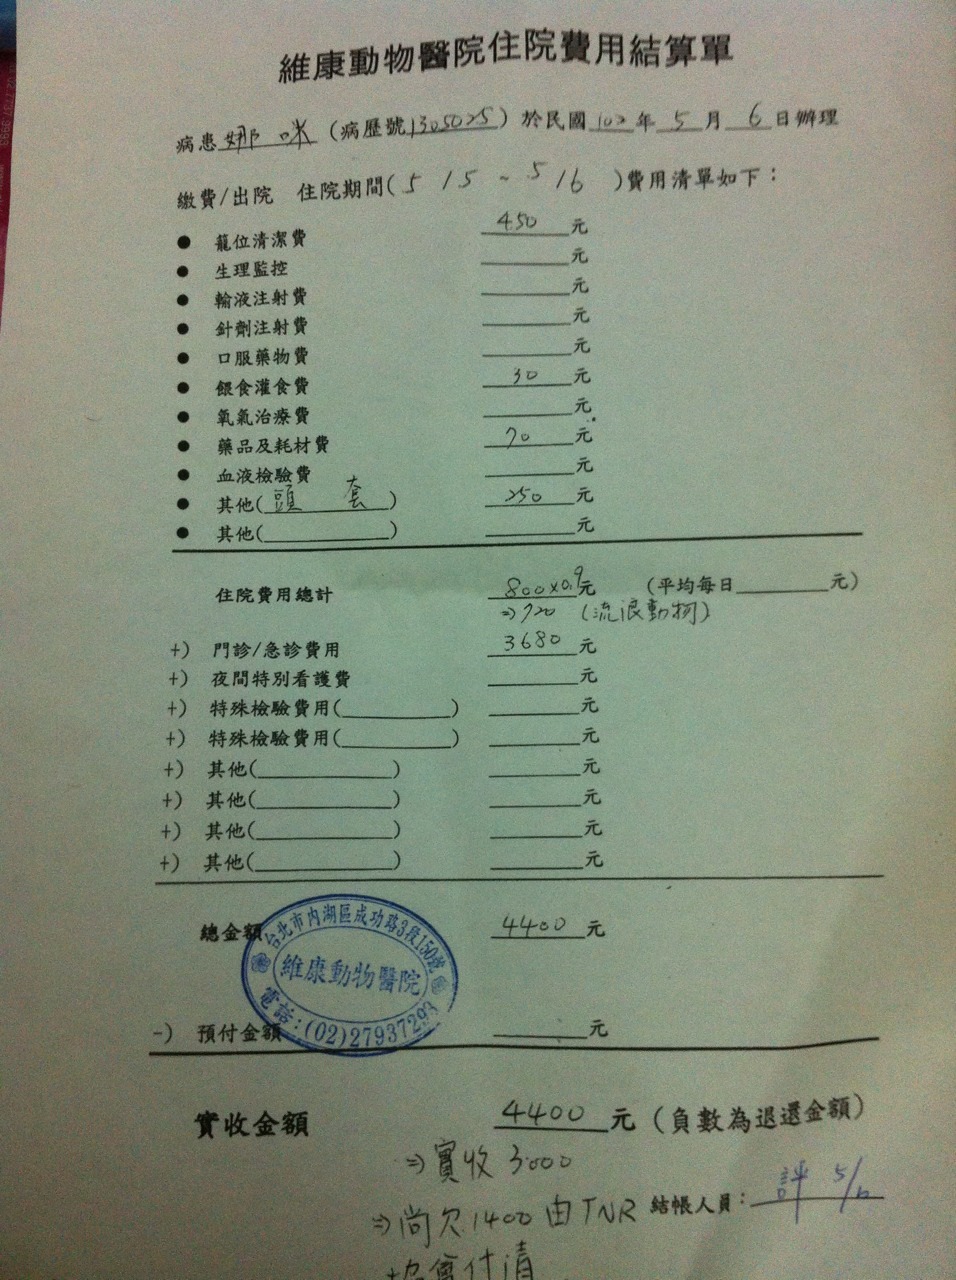 維康動物醫院住院費用結算單
病患娜咪(病歷號1305025)於民國102年5月6日辦理
繳費/出院 住院期間(5/5~5/6)費用清單如下:
● 籠位清潔費 450元
● 生理監控 元
● 輸液注射費 元
● 針劑注射費 元
● 口服藥物費 元
● 餵食灌食費 30元
● 氧氣治療費 元
● 藥品及耗材費 70元
● 血液檢驗費 元
● 其他(頭套) 250元
● 其他( ) 元
住院費用總計 800x0.9元 (平均每日 元)
⇒720 (流浪動物)
+) 門診/急診費用 3680元
+) 夜間特別看護費 元
+) 特殊檢驗費用( ) 元
+) 特殊檢驗費用( ) 元
+) 其他( ) 元
+) 其他( ) 元
+) 其他( ) 元
+) 其他( ) 元
總金額 4400元
台北市內湖區成功路3段150號
維康動物醫院
電話:(02)27937293
-) 預付金額 元
實收金額 4400元(負數為退還金額)
⇒實收3000
⇒尚欠1400由TNR 結帳人員:評 5/6
協會付清